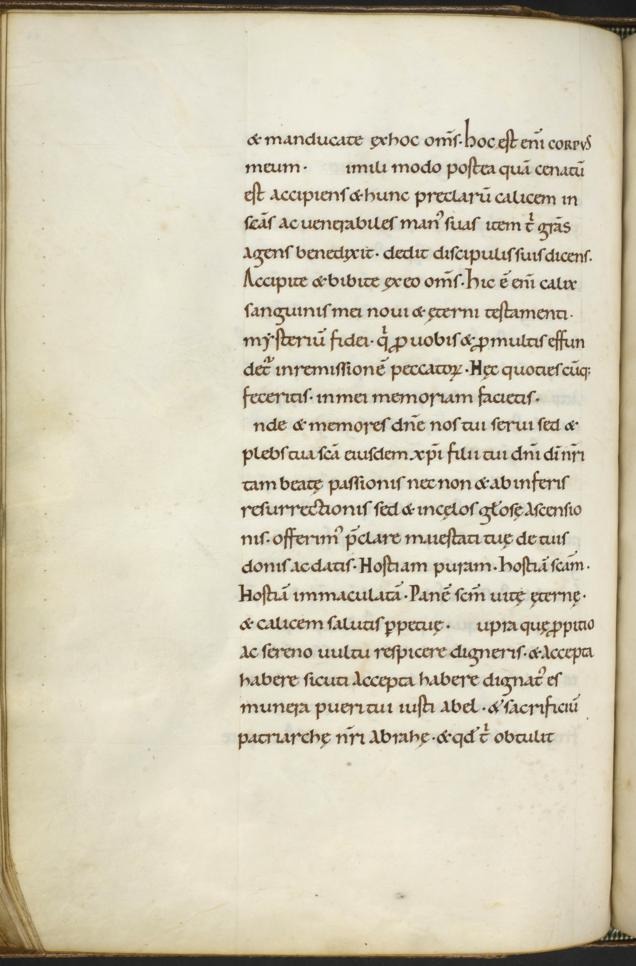 & manducate ex hoc om̄s. hoc est enī CORPVS
meum. imili modo postea quā cenatū
est accipiens & hunc preclarū calicem in
scās ac uenerabiles manꝰ suas item t̊ grās
agens benedixit. dedit discipulis suis dicens.
Accipite & bibite ex eo om̄s. hic ē enī calix
sanguinis mei noui & ęterni testamenti.
mysteriū fidei. q̊ ꝓ uobis & ꝓ multis effun
det̄ in remissionē peccatoꝝ. Hęc quotiescūq;
feceritis. in mei memoriam facietis.
nde & memores dn̄e nos tui serui sed &
plebs tua scā eiusdem xp̄i filii tui dn̄i dī nr̄i
tam beatę passionis nec non & ab inferis
resurrectionis sed & in cęlos gl̄osę ascensio
nis. offerimꝰ p̄clarę maiestati tuę de tuis
donis ac datis. Hostiam puram. hostiā scām.
Hostiā immaculatā. Panē scm̄ uitę ęternę.
& calicem salutis ꝑpetuę. upra quę ꝓpitio
ac sereno uultu respicere digneris. & accepta
habere sicuti accepta habere dignatꝰ es
munera pueri tui iusti abel. & sacrificiū
patriarchę nr̄i abrahę. & qd̄ t̊ obtulit